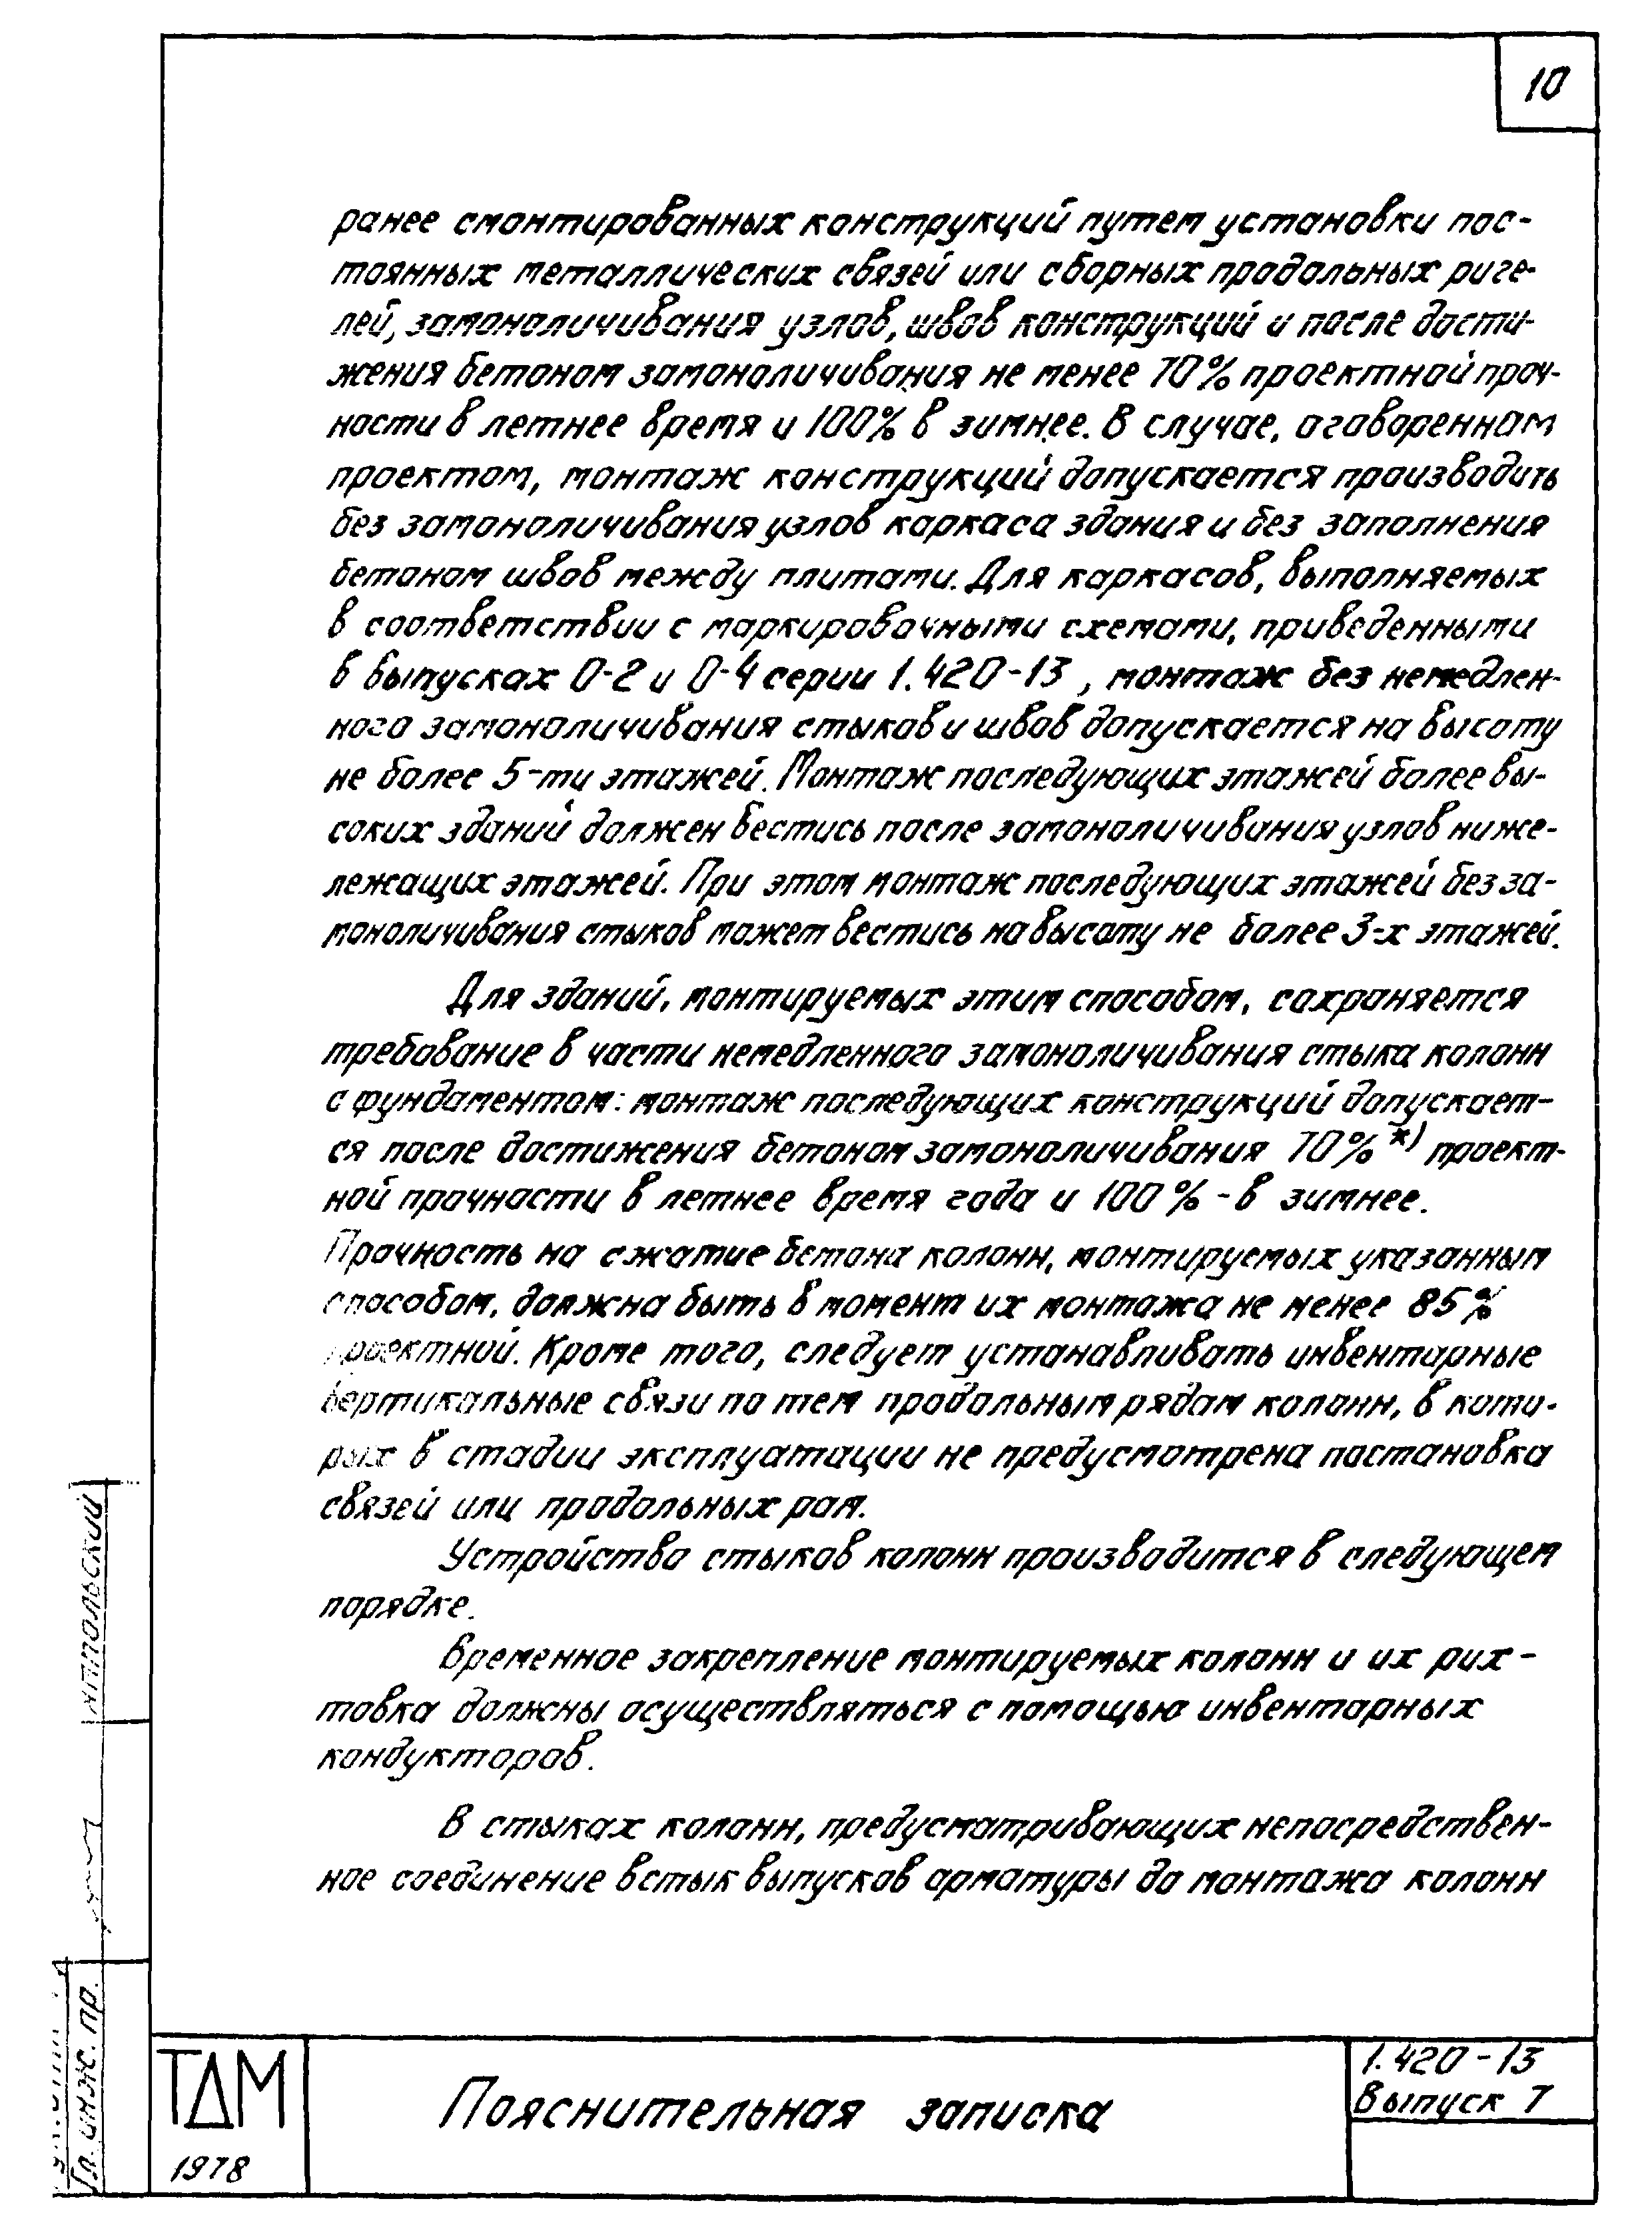 10
ранее смонтированных конструкций путем установки пос-
тоянных металлических связей или сборных продольных риге-
лей, замоноличивания узлов, швов конструкций и после дости-
жения бетоном замоноличивания не менее 70% проектной проч-
ности в летнее время и 100% в зимнее. В случае, оговоренном
проектом, монтаж конструкций допускается производить
без замоноличивания узлов каркаса здания и без заполнения
бетоном швов между плитами. Для каркасов, выполняемых
в соответствии с маркировочными схемами, приведенными
в выпусках 0-2 и 0-4 серии 1.420-13, монтаж без немедлен-
ного замоноличивания стыков и швов допускается на высоту
не более 5-ти этажей. Монтаж последующих этажей более вы-
соких зданий должен вестись после замоноличивания узлов ниже-
лежащих этажей. При этом монтаж последующих этажей без за-
моноличивания стыков может вестись на высоту не более 3-х этажей.
Для зданий, монтируемых этим способом, сохраняется
требование в части немедленного замоноличивания стыка колонн
с фундаментом: монтаж последующих конструкций допускает-
ся после достижения бетоном замоноличивания 70%*) проект-
ной прочности в летнее время года и 100% - в зимнее.
Прочность на сжатие бетона колонн, монтируемых указанным
способом, должна быть в момент их монтажа не менее 85%
проектной. Кроме того, следует устанавливать инвентарные
вертикальные связи по тем продольным рядам колонн, в кото-
рых в стадии эксплуатации не предусмотрена постановка
связей или продольных рам.
Устройство стыков колонн производится в следующем
порядке.
Временное закрепление монтируемых колонн и их рих-
товка должны осуществляться с помощью инвентарных
кондукторов.
В стыках колонн, предусматривающих непосредствен-
ное соединение встык выпусков арматуры до монтажа колонн
Гл. инж. пр.
ТДМ
1978
Пояснительная записка
1.420-13
Выпуск 7